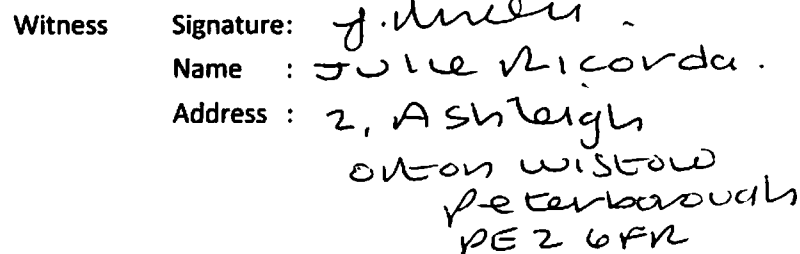 Witness Signature: J.
Name : Julie Ricorda.
Address : 2, Ashleigh
orton wistow
Peterborough
PE2 6FR